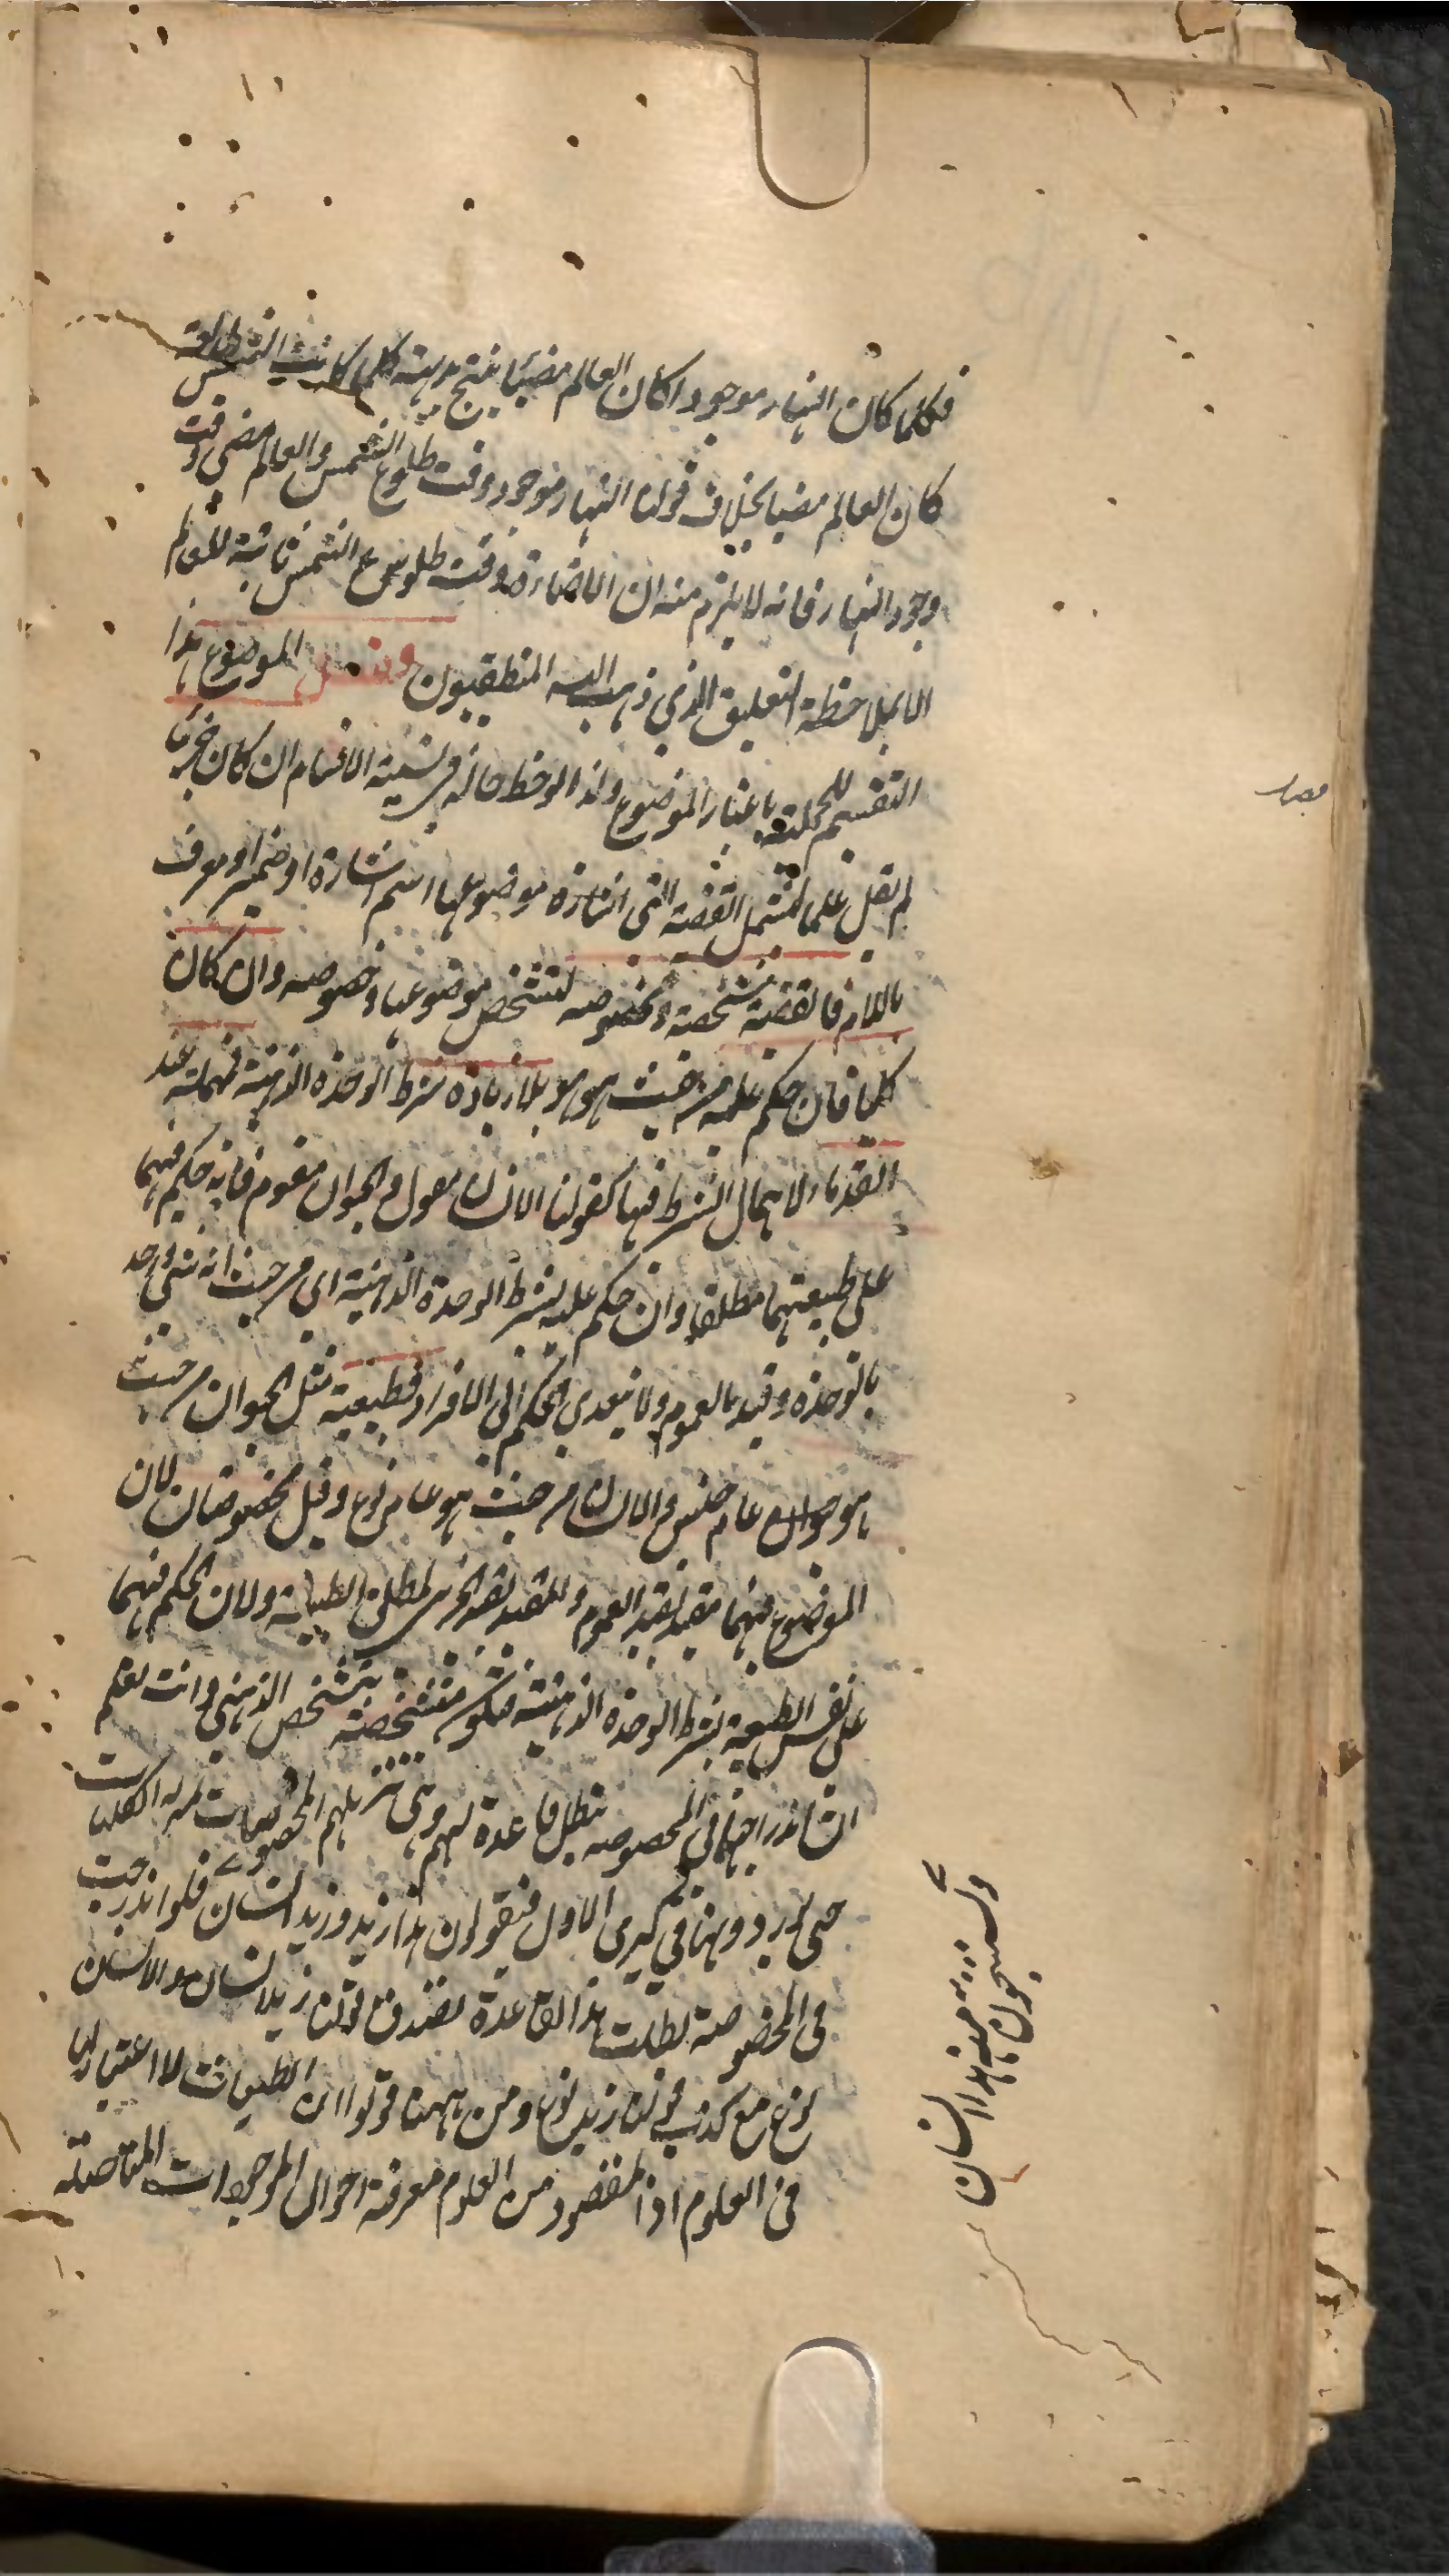 فكلما كان النهار موجودا كان العالم مضيئا ينتج بديهة كلما كانت الشمس طالعة
كان العالم مضيا بخلاف قولنا النهار موجود وقت طلوع الشمس والعالم مضى وقت
وجود النهار فانه لا يلزم منه ان الاضاءة وقت طلوع الشمس ثابتة للعالم
الا بملاحظة التعليق الذي ذهب اليه المنطقيون فصل الموضوع هذا
التقسيم للحملية باعتبار الموضوع ولذا لوحظ حاله في تسمية الاقسام ان كان جزئيا
لم يقل علما لتشمل القضية التي موضوعها اسم اشارة او ضمير او معرف
باللام فالقضية شخصية ومخصوصه لتشخص موضوعها وخصوصه وان كان
كليا فان حكم عليه من حيث هو هو بلا زيادة شرط الوحدة الذهنية فمهملة عند
القدماء لاهمال الشرط فيها كقولنا الانسان مقول والحيوان مقوم فانه حكم فيهما
على طبيعتهما مطلقا وان حكم عليه بشرط الوحدة الذهنية اى من حيث انه شئ واحد
بالوحدة وقيد بالعموم ولا يتعدى الحكم الى الافراد فطبيعية مثل الحيوان من حيث
هو حيوان عام جنس والانسان من حيث هو عام نوع وقيل مخصوصتان لان
الموضوع فيهما مقيد بقيد العموم ولان الحكم فيهما
على نفس الطبيعة بشرط الوحدة الذهنية فتكون متشخصة بتشخص الذهني وانت تعلم
ان اندراجهما في المخصوصه تبطل قاعدة لهم وهى تنزيلهم المخصوصات منزلة الكليات
حتى يوردونها في كبرى الاول فيقولون هذا زيد وزيد انسان فلو اندرجت
فى المخصوصة بطلت هذا القاعدة لصدق قولنا زيد انسان والانسان
نوع مع كذب قولنا زيد نوع ومن ههنا قولوا ان الطبيعيات لا اعتبار لها
فى العلوم اذ المقصود من العلوم معرفة احوال الموجودات المتاصلة
وينتجون منه هذا انسان